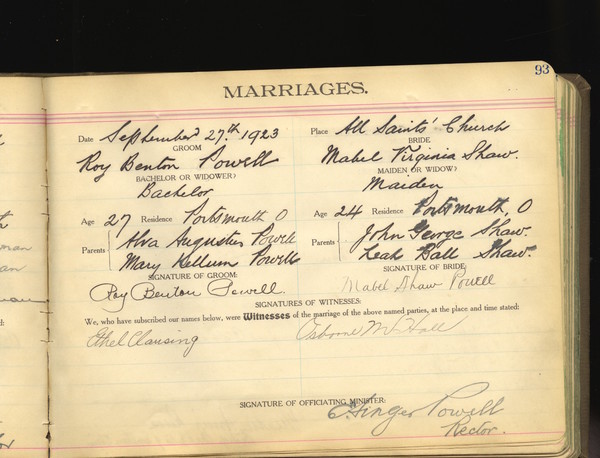 93
MARRIAGES.
Date September 27th 1923 Place All Saints' Church
GROOM BRIDE
Roy Benton Powell Mabel Virginia Shaw.
BACHELOR OR WIDOWER? MAIDEN OR WIDOW?
Bachelor Maiden
Age 27 Residence Portsmouth, O Age 24 Residence Portsmouth, O
Parents Alva Augustus Powell John George Shaw.
Mary Kellum Powell Leah Ball Shaw.
SIGNATURE OF GROOM: SIGNATURE OF BRIDE:
Roy Benton Powell. Mabel Shaw Powell
SIGNATURES OF WITNESSES:
We, who have subscribed our names below, were Witnesses of the marriage of the above named parties, at the place and time stated:
Ethel Clausing Osborne Hall
SIGNATURE OF OFFICIATING MINISTER:
Powell
Rector.